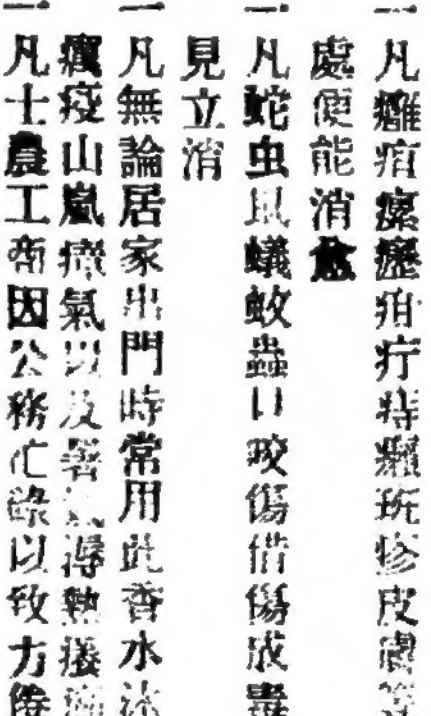 一凡癰疽瘰癧疳疔痔癩斑疹皮膚等
處便能消愈
一凡蛇虫風蟻蚊蟲口咬傷借傷成毒
見立消
一凡無論居家出門時常用此香水沐
癘疫山嵐瘴氣以及暑氣溽熱
一凡士農工商因公務忙碌以致方倦